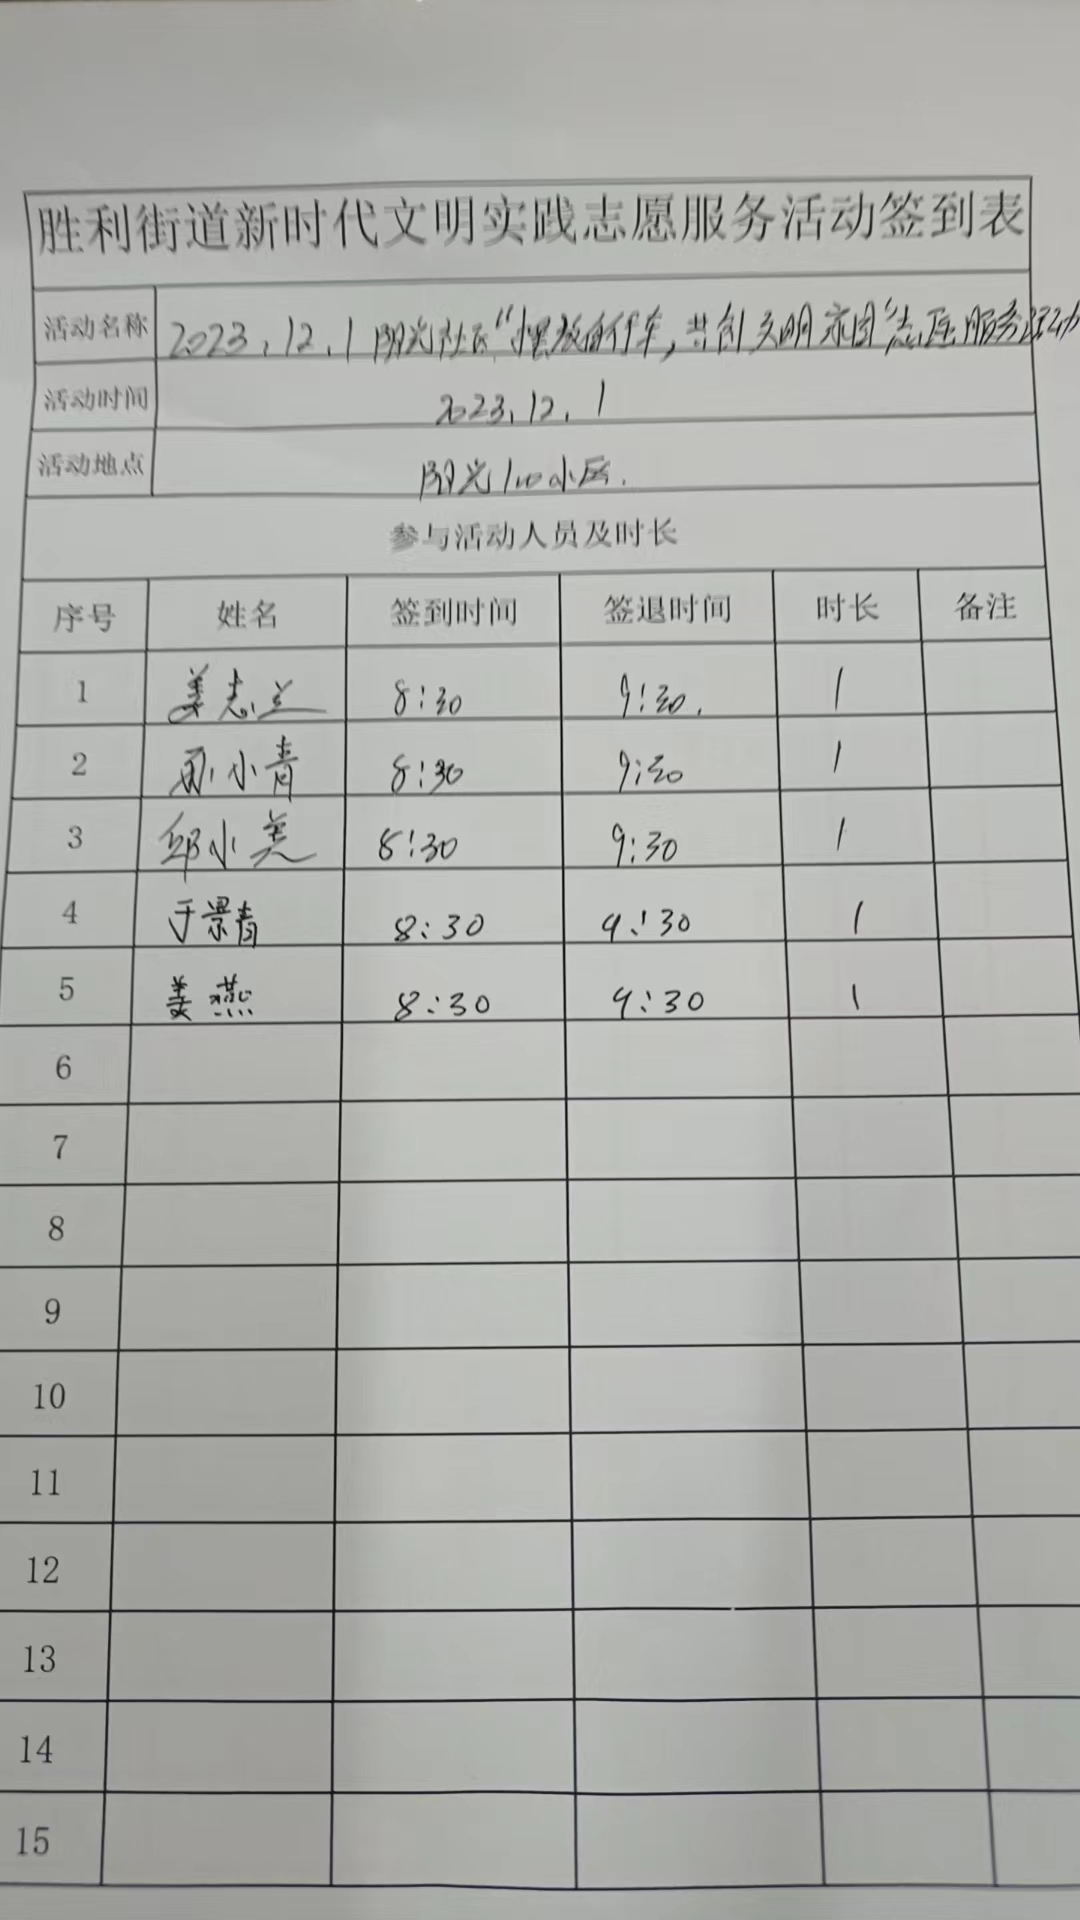 胜利街道新时代文明实践志愿服务活动签到表
活动名称 2023.12.1 阳光社区“摆放自行车,共创文明家园”志愿服务活动
活动时间 2023.12.1
活动地点 阳光100小区.
参与活动人员及时长
序号 姓名 签到时间 签退时间 时长 备注
1 姜志兰 8:30 9:30. 1
2 小青 8:30 9:30 1
3 邱小美 8:30 9:30 1
4 于景青 8:30 9:30 1
5 姜燕 8:30 9:30 1
6
7
8
9
10
11
12
13
14
15